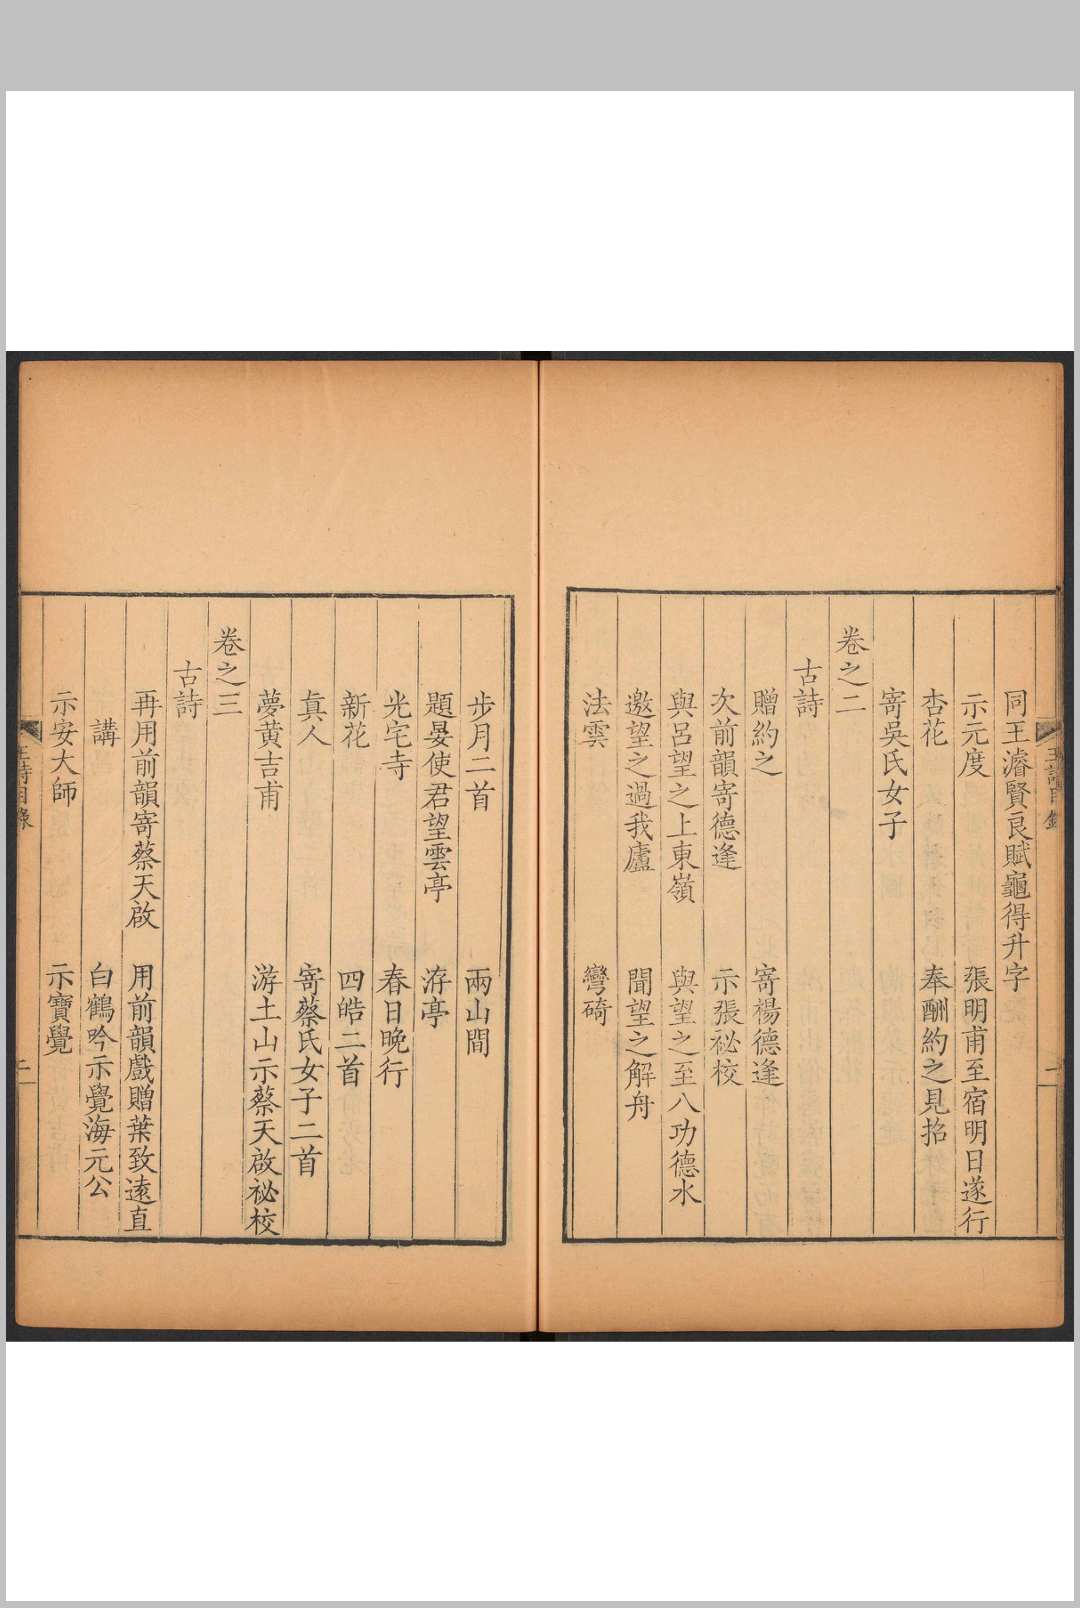 同王濬賢良賦龜得升字
示元度　張明甫至宿明日遂行
杏花　奉酬約之見招
寄吳氏女子
卷之二
古詩
贈約之　寄楊德逢
次前韻寄德逢　示張祕校
與呂望之上東嶺　與望之至八功德水
邀望之過我廬　聞望之解舟
法雲　彎碕
步月二首　兩山間
題晏使君望雲亭　洊亭
光宅寺　春日晚行
新花　四皓二首
真人　寄蔡氏女子二首
夢黃吉甫　游土山示蔡天啟祕校
卷之三
古詩
再用前韻寄蔡天啟　用前韻戲贈葉致遠直
講　白鶴吟示覺海元公
示安大師　示寶覺
王詩目錄